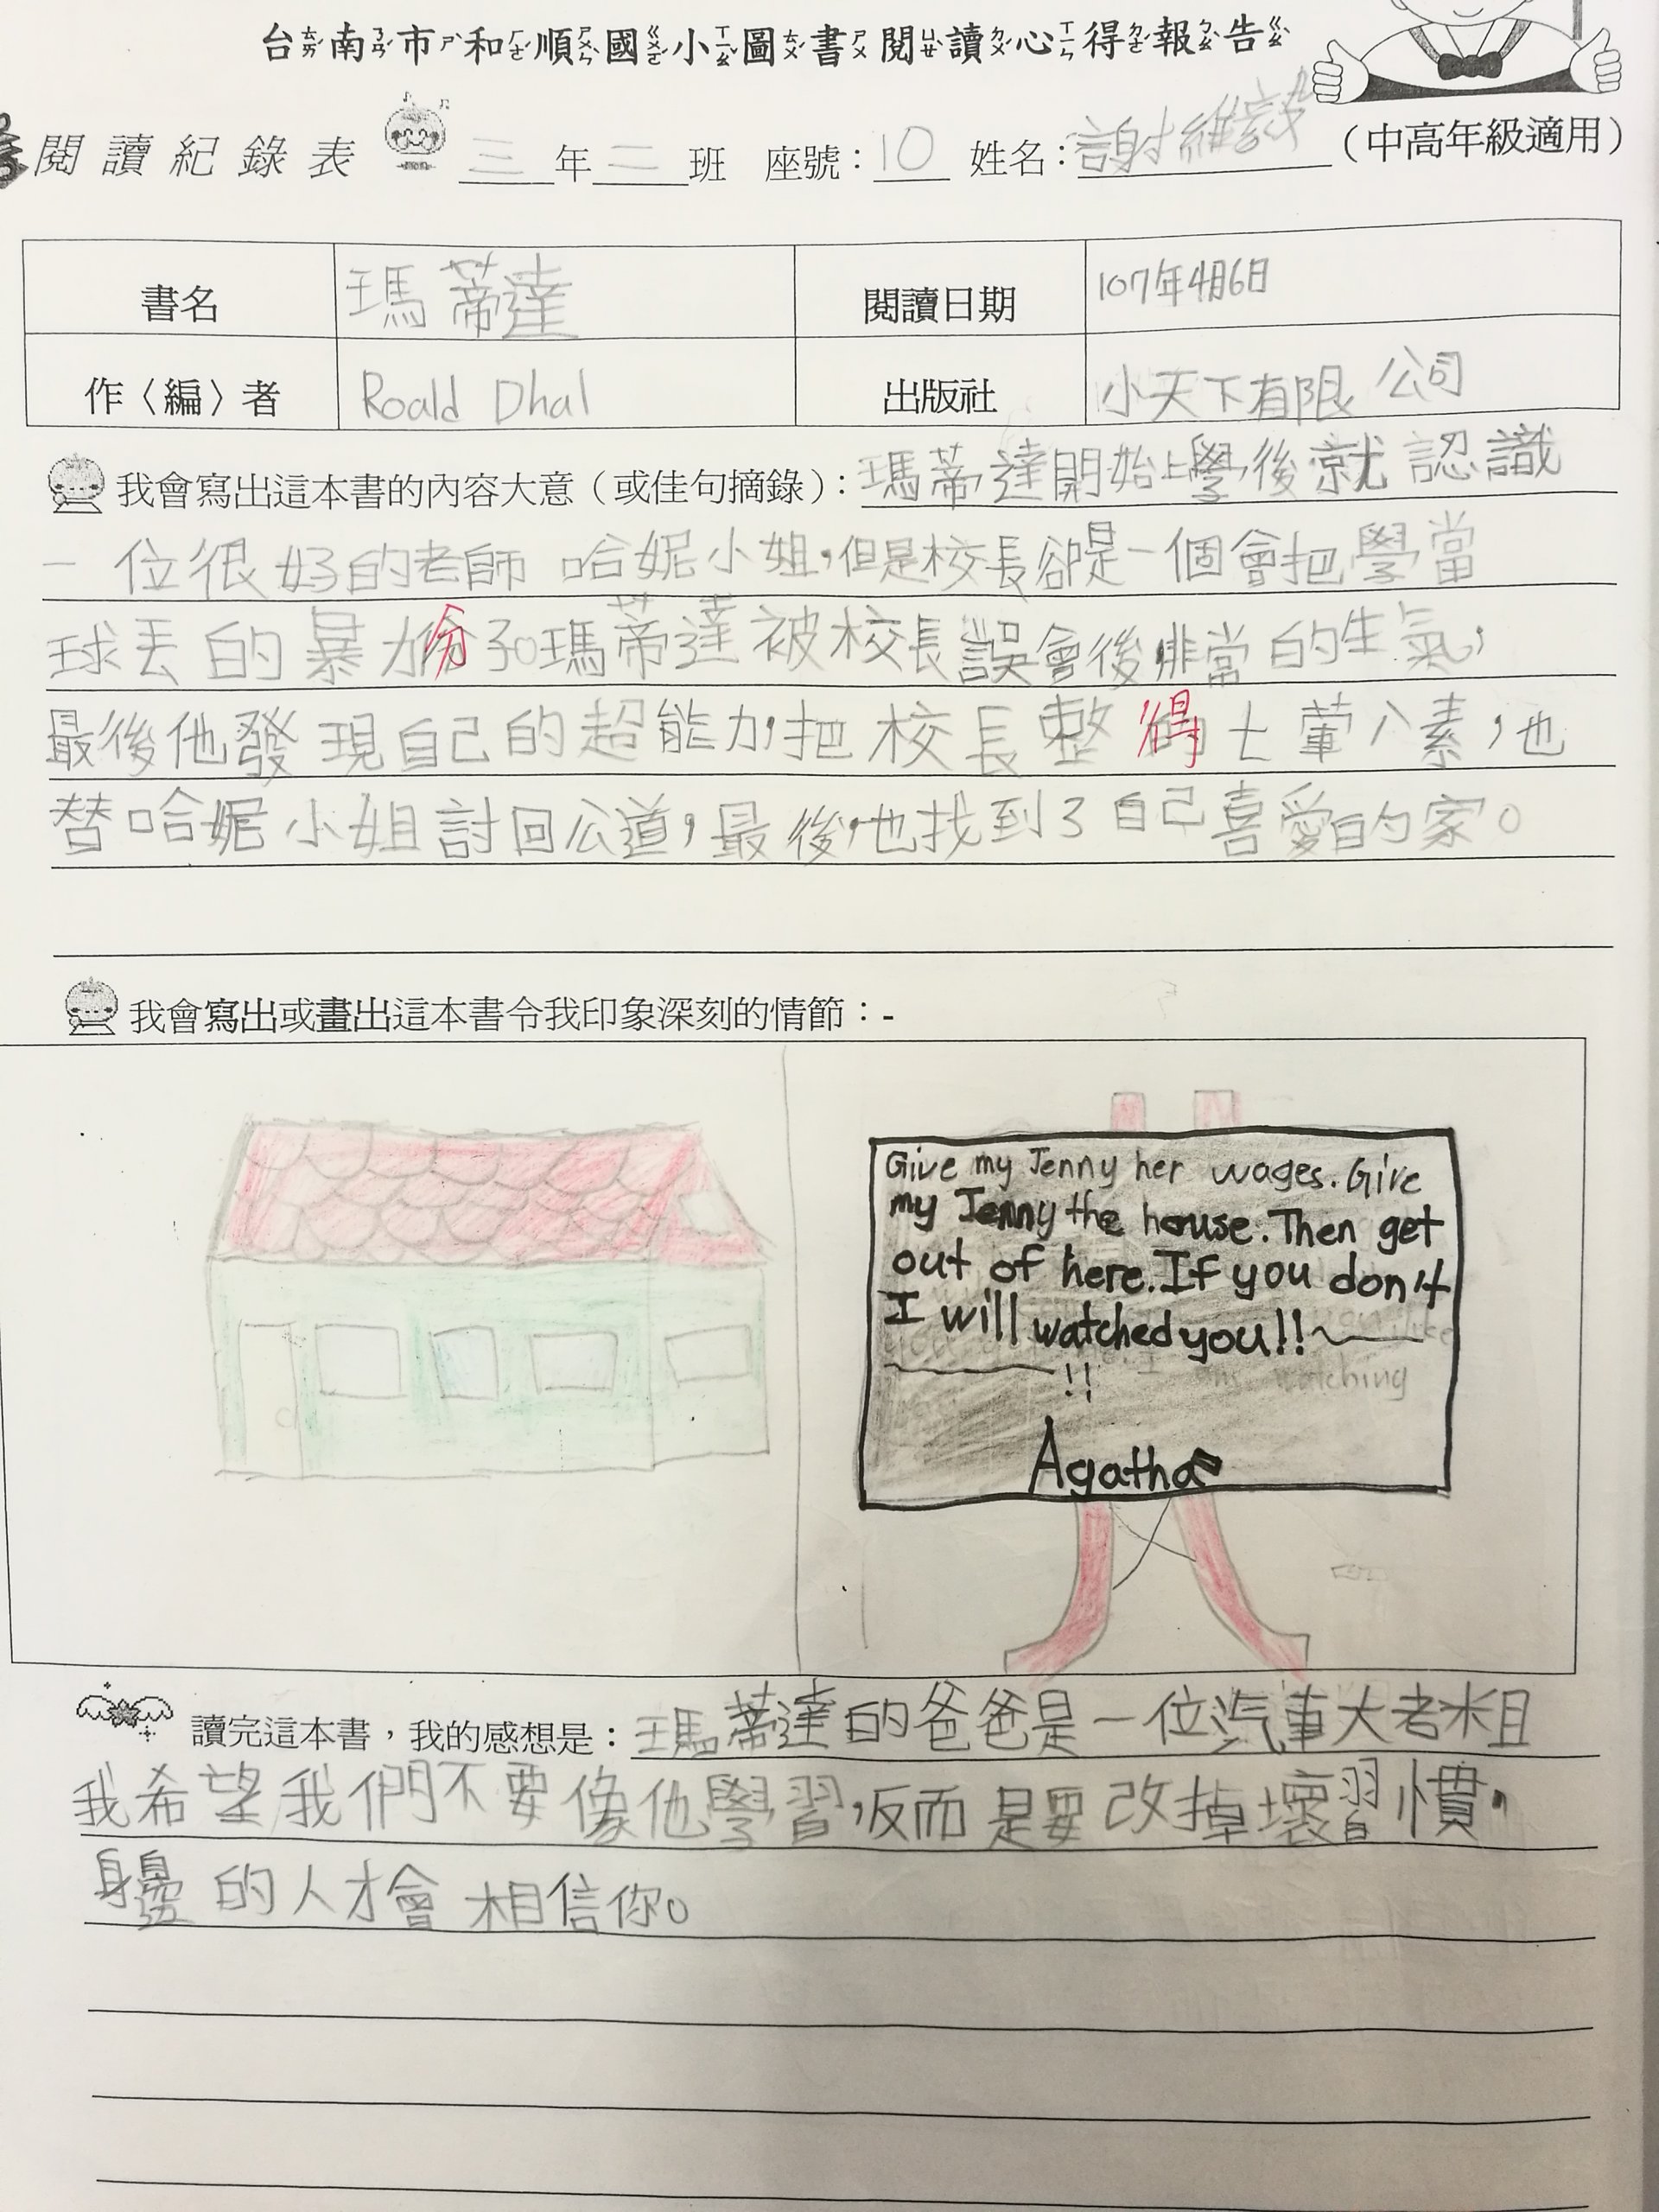 台南市和順國小圖書閱讀心得報告
閱讀紀錄表 三年二班 座號:10 姓名:謝維 (中高年級適用)
書名 瑪蒂達 閱讀日期 107年4月6日
作〈編〉者 Roald Dhal 出版社 小天下有限公司
我會寫出這本書的內容大意(或佳句摘錄):瑪蒂達開始上學後就認識
一位很好的老師哈妮小姐,但是校長卻是一個會把學當
球丟的暴力份子。瑪蒂達被校長誤會後非常的生氣,
最後他發現自己的超能力,把校長整得七葷八素,也
替哈妮小姐討回公道,最後,也找到了自己喜愛的家。
我會寫出或畫出這本書令我印象深刻的情節:-
Give my Jenny her wages. Give
my Jenny the house. Then get
out of here. If you don't
I will watched you!!~
!!
watching
Agatha
讀完這本書,我的感想是:瑪蒂達的爸爸是一位汽車大老粗
我希望我們不要像他學習,反而是要改掉壞習慣,
身邊的人才會相信你。